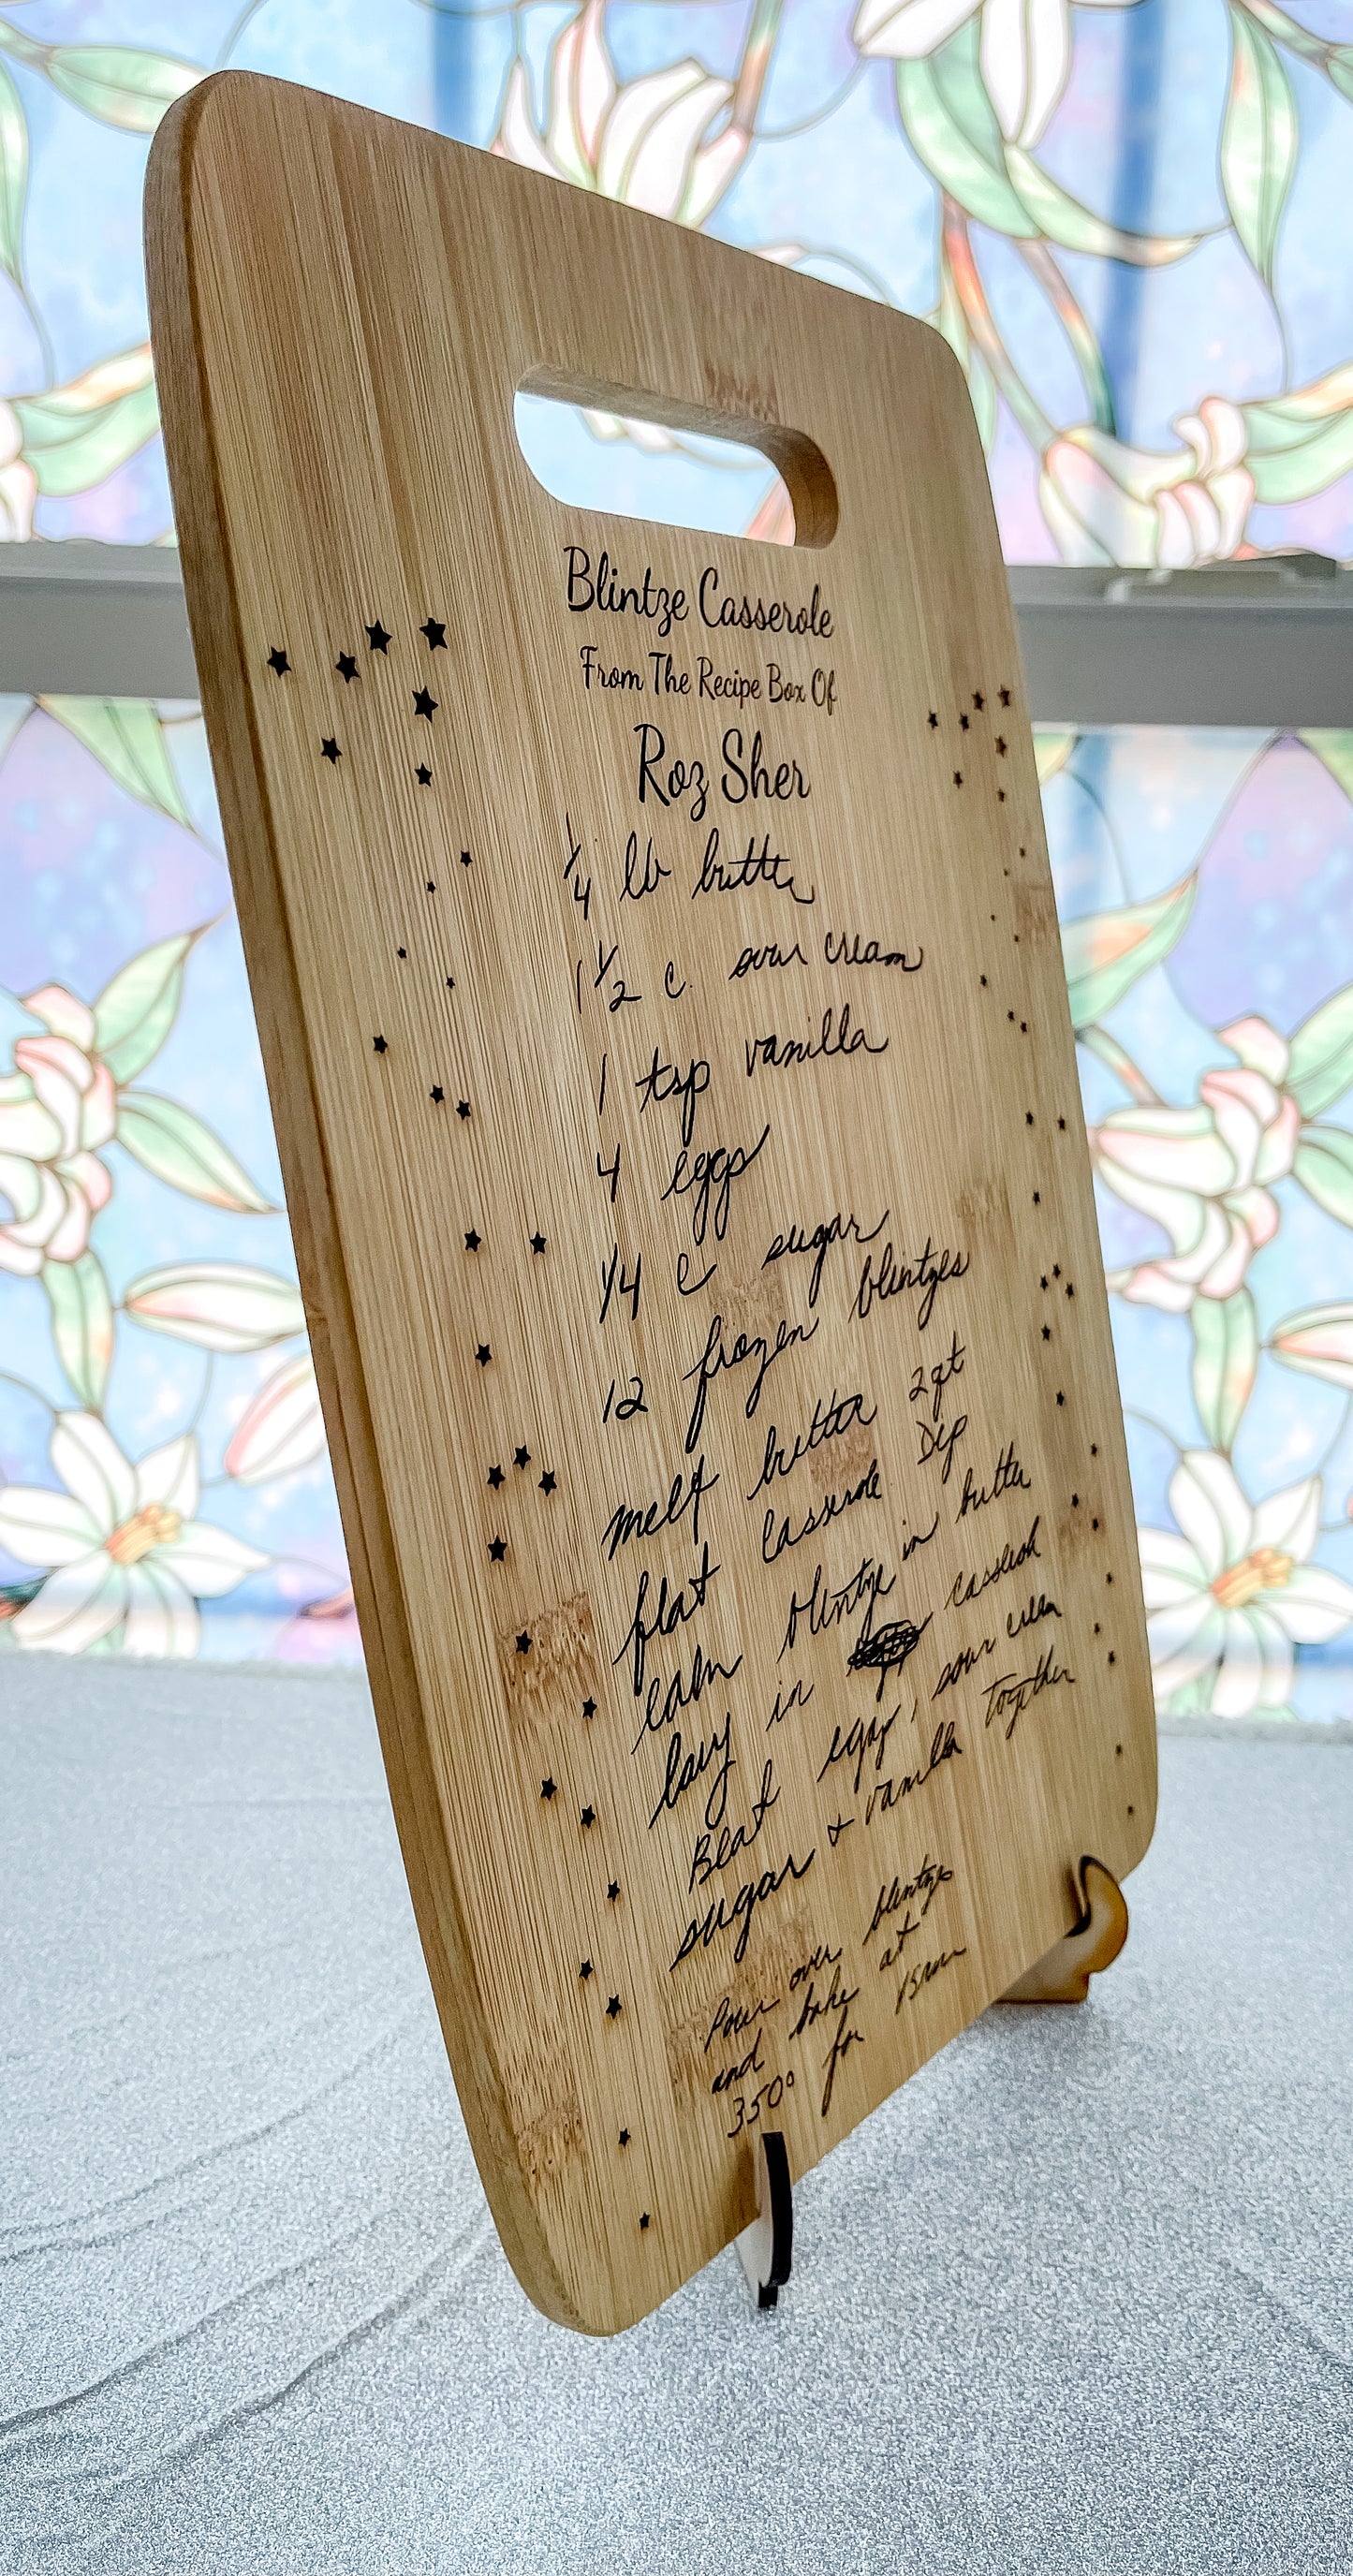 Blintze Casserole
From The Recipe Box Of
Roz Sher
1/4 lb butter
1 1/2 c. sour cream
1 tsp vanilla
4 eggs
1/4 c sugar
12 frozen blintzes
melt butter 2qt
flat casserole. Dip
each blintze in butter
lay in casserole
Beat eggs, sour cream
sugar + vanilla together
Pour over blintzes
and bake at
350° for